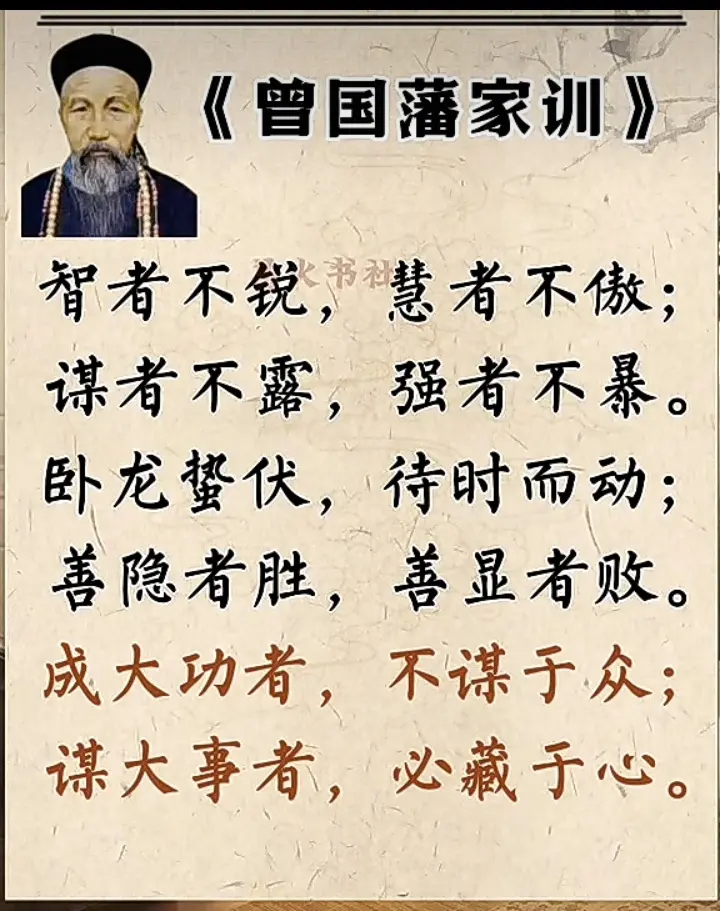 《曾国藩家训》
智者不锐，慧者不傲；
谋者不露，强者不暴。
卧龙蛰伏，待时而动；
善隐者胜，善显者败。
成大功者，不谋于众；
谋大事者，必藏于心。